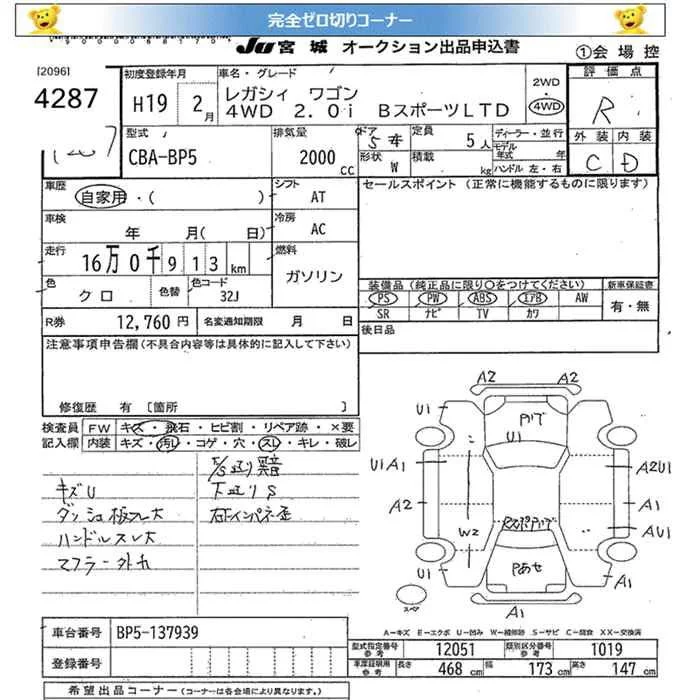 完全ゼロ切りコーナー
JU 宮城 オークション出品申込書
①会場控
[2096]
4287
初度登録年月
H19 2月
車名・グレード
レガシィ ワゴン
4WD 2.0i BスポーツLTD
2WD
・
4WD
評価点
R
外装 内装
C D
型式
CBA-BP5
排気量
2000 CC
ドア 5本
形状 W
定員 5人
積載 kg
ディーラー・並行
モデル年式 年
ハンドル 左・右
車歴
自家用・( )
シフト
AT
セールスポイント (正常に機能するものに限ります)
車検
年 月( 日)
冷房
AC
走行
16万0千913km
燃料
ガソリン
色
クロ
色替
色コード
32J
装備品(純正品に限り○をつけてください)
新車保証書
PS PW ABS エアB AW
SR ナビ TV カワ
有・無
R券 12,760円 名変通知期限 月 日
後日品
注意事項申告欄(不具合内容等は具体的に記入して下さい)
修復歴 有 [箇所 ]
検査員
記入欄
FW キズ・飛石・ヒビ割・リペア跡・×要
内装 キズ・汚レ・コゲ・穴・スレ・キレ・破レ
キズU
ダッシュ板スレ大
ハンドルスレ大
マフラー外れ
下廻りS
A2 A2
U1
U1
U1 A1
A2U1
A2
A1
W2
AU1
Pあせ
U1
A1
A1
スペア
A-キズ E-エクボ U-凹み W-補修跡 S-サビ C-腐食 XX-交換済
車台番号 BP5-137939
登録番号
型式指定番号 参考 12051 類別区分番号 参考 1019
車庫証明用 参考 長さ 468cm 幅 173cm 高さ 147cm
希望出品コーナー (コーナーは各会場により異なります)